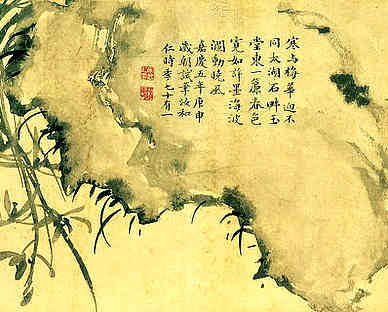 寒与梅華迥不
同太湖石畔玉
堂東一簾春色
寬如許墨海波
瀾動曉風
嘉慶五年庚申
歲朝試筆汝和
仁時季七十有一